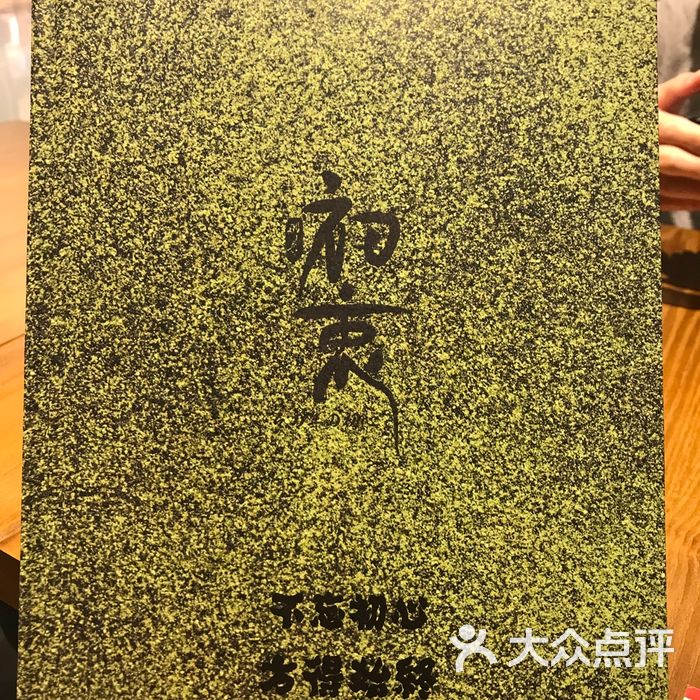 初衷
不忘初心
方得始终
大众点评